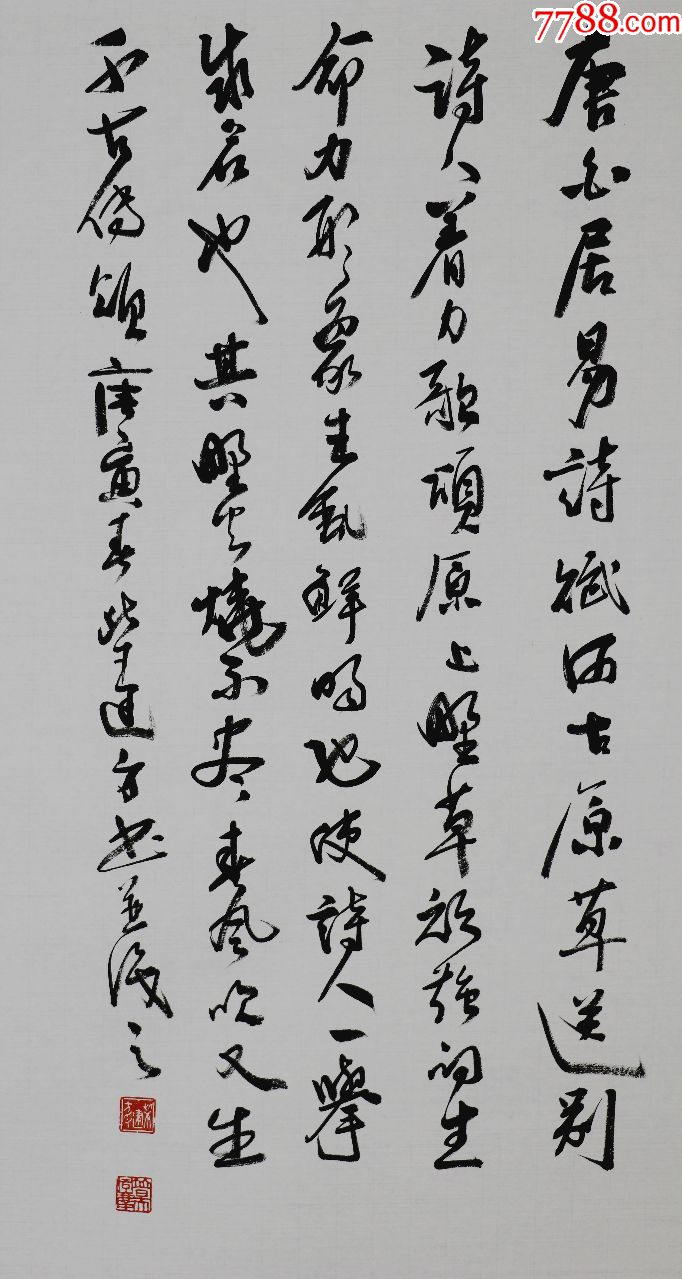 7788.com
唐白居易詩賦得古原草送別
詩人着力歌頌原上野草頑強的生
命力形象生動鮮明也使詩人一舉
成名也其野火燒不盡春風吹又生
千古傳頌庚寅春柴建方書並識之